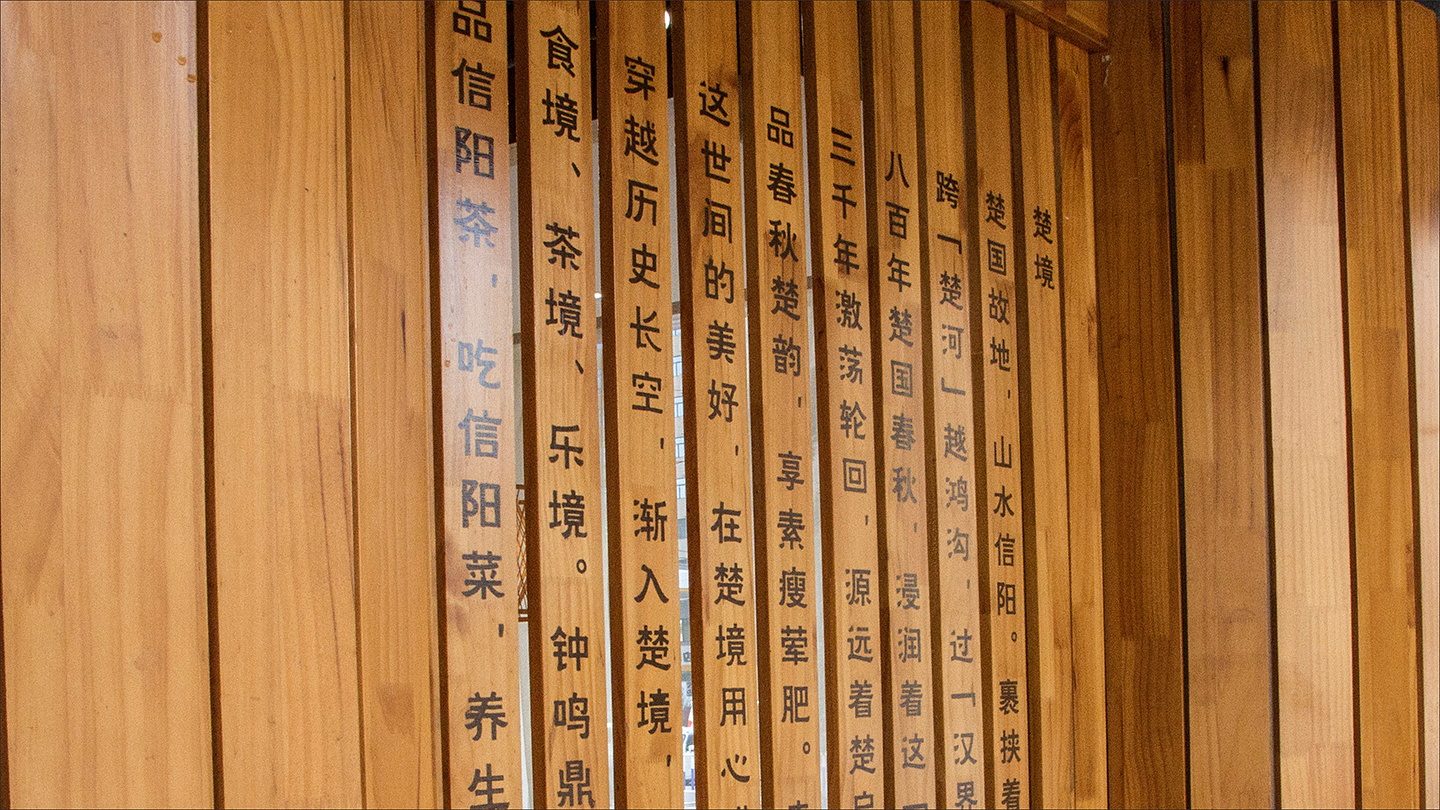 楚境
楚国故地，山水信阳。裹挟着
跨「楚河」越鸿沟，过「汉界
八百年楚国春秋，浸润着这
三千年激荡轮回，源远着楚
品春秋楚韵，享素瘦荤肥。
这世间的美好，在楚境用心
穿越历史长空，渐入楚境，
食境、茶境、乐境。钟鸣鼎
品信阳茶，吃信阳菜，养生